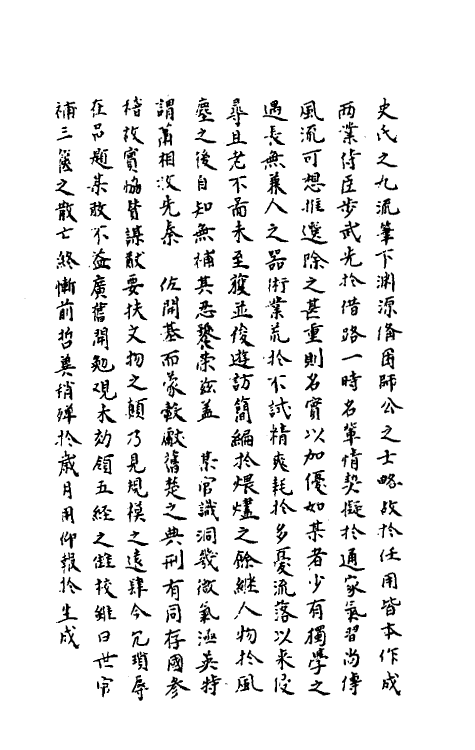 史氏之九流筆下淵源備困師公之士略故於任用皆本作成
两業侍臣步武先於借路一時名輩情契擬於通家氣習尚傳
風流可想推選除之甚重則名實以加優如某者少有獨學之
遇長無兼人之器術業荒於不試精爽耗於多憂流落以來侵
尋且老不啚未至獲並俊遊訪簡編於煨燼之餘継人物於風
塵之後自知無補其忍饕榮兹盖 某官識洞幾微氣涵英特
謂蕭相收先秦 佐開基而蒙敷獻舊楚之典刑有同存國参
稽故實恊賛謀猷要扶文物之顛乃見規模之遠肆令冗瑣辱
在品題某敢不益廣舊聞勉覌未効領五經之雠校雖曰世官
補三篋之散亡終慙前哲兾稍殫於歲月用仰報於生成